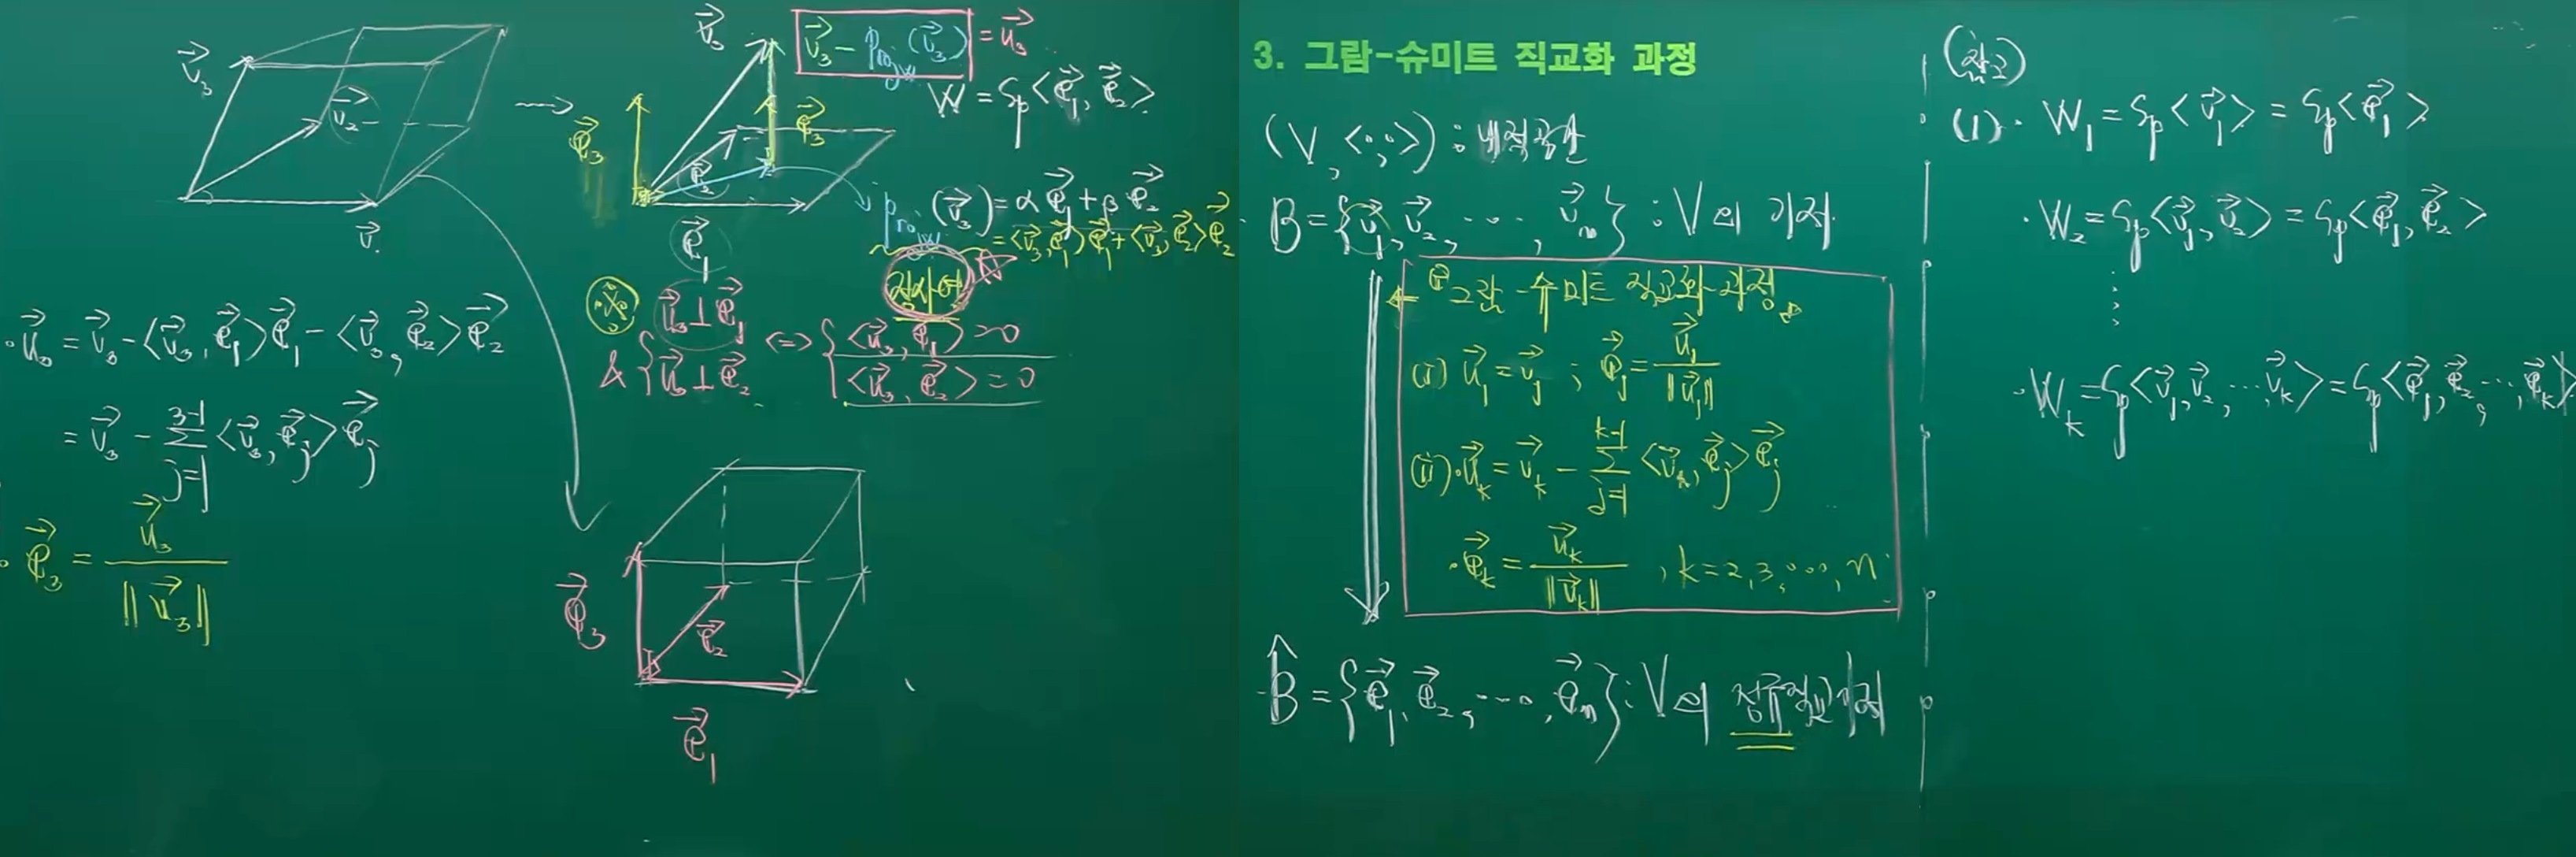 v⃗₃
v⃗₂
v⃗₁
v⃗₃
v⃗₃ - proj_W(v⃗₃) = u⃗₃
W = Sp<e⃗₁, e⃗₂>
e⃗₃
e⃗₃
e⃗₂
e⃗₁
proj_W(v⃗₃) = αe⃗₁ + βe⃗₂
= <v⃗₃, e⃗₁>e⃗₁ + <v⃗₃, e⃗₂>e⃗₂
정사영
※
u⃗₃ ⊥ e⃗₁
& { u⃗₃ ⊥ e⃗₂ <=> { <u⃗₃, e⃗₁> = 0
<u⃗₃, e⃗₂> = 0
· u⃗₃ = v⃗₃ - <v⃗₃, e⃗₁>e⃗₁ - <v⃗₃, e⃗₂>e⃗₂
= v⃗₃ - Σ_{j=1}^{3-1} <v⃗₃, e⃗_j>e⃗_j
· e⃗₃ = u⃗₃ / ||u⃗₃||
e⃗₃
e⃗₂
e⃗₁
3. 그람-슈미트 직교화 과정
(V, <·,·>) : 내적공간
· B = {v⃗₁, v⃗₂, ..., v⃗ₙ} : V의 기저
그람-슈미트 직교화 과정
(i) u⃗₁ = v⃗₁ ; e⃗₁ = u⃗₁ / ||u⃗₁||
(ii) · u⃗_k = v⃗_k - Σ_{j=1}^{k-1} <v⃗_k, e⃗_j>e⃗_j
· e⃗_k = u⃗_k / ||u⃗_k|| , k = 2, 3, ..., n
· B̂ = {e⃗₁, e⃗₂, ..., e⃗ₙ} : V의 정규직교기저
(참고)
(1) · W₁ = Sp<v⃗₁> = Sp<e⃗₁>
· W₂ = Sp<v⃗₁, v⃗₂> = Sp<e⃗₁, e⃗₂>
⋮
· W_k = Sp<v⃗₁, v⃗₂, ..., v⃗_k> = Sp<e⃗₁, e⃗₂, ..., e⃗_k>